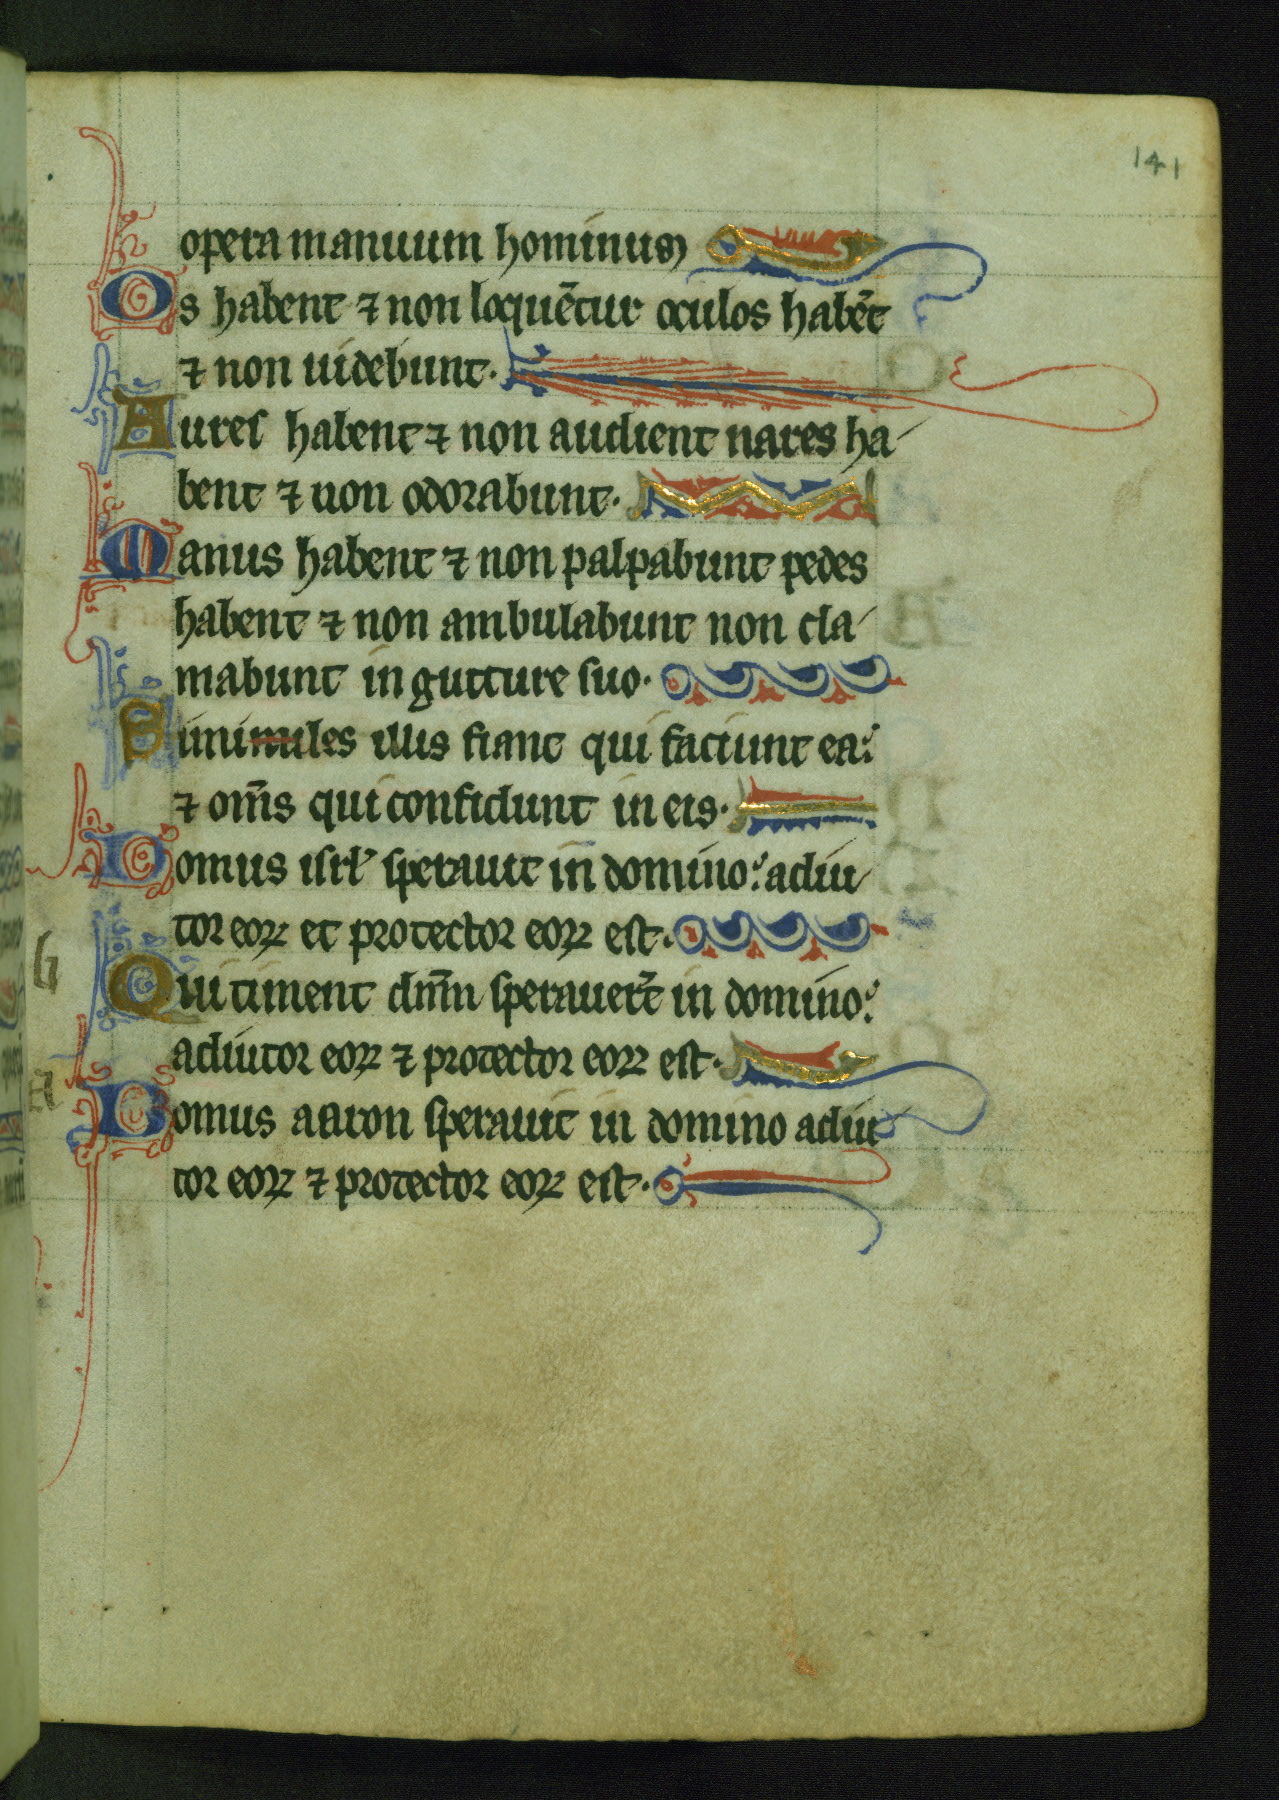 141
opera manuum hominus
Os habent ⁊ non loquēcur oculos habēt
⁊ non uidebunt.
Aures habent ⁊ non audient nares ha
bent ⁊ non odorabunt.
Manus habent ⁊ non palpabunt pedes
habent ⁊ non ambulabunt non cla
mabunt in gutture suo.
Sinimiles illis fiant qui faciunt ea:
⁊ om̄s qui confidunt in eis.
Domus isrl' sperauit in domino: adiu
tor eoꝝ et protector eoꝝ est.
Qui timent dn̄m sperauer̄t in domino:
adiutor eoꝝ ⁊ protector eoꝝ est.
Domus aaron sperauit in domino adiu
tor eoꝝ ⁊ protector eoꝝ est.